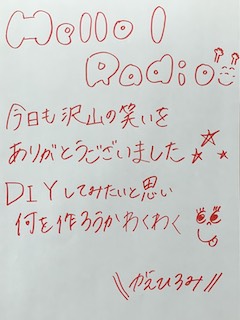 Hello!
Radio
今日も沢山の笑いを
ありがとうございました
DIYしてみたいと思い
何を作ろうかわくわく
\\がえひろみ//